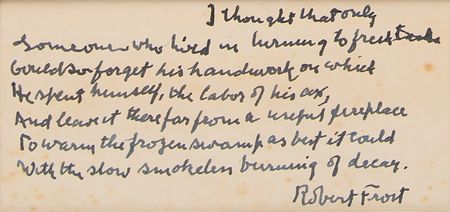 I thought that only
Someone who lived in turning to fresh tasks
Could so forget his handiwork on which
He spent himself, the labor of his ax,
And leave it there far from a useful fireplace
To warm the frozen swamp as best it could
With the slow smokeless burning of decay.
Robert Frost